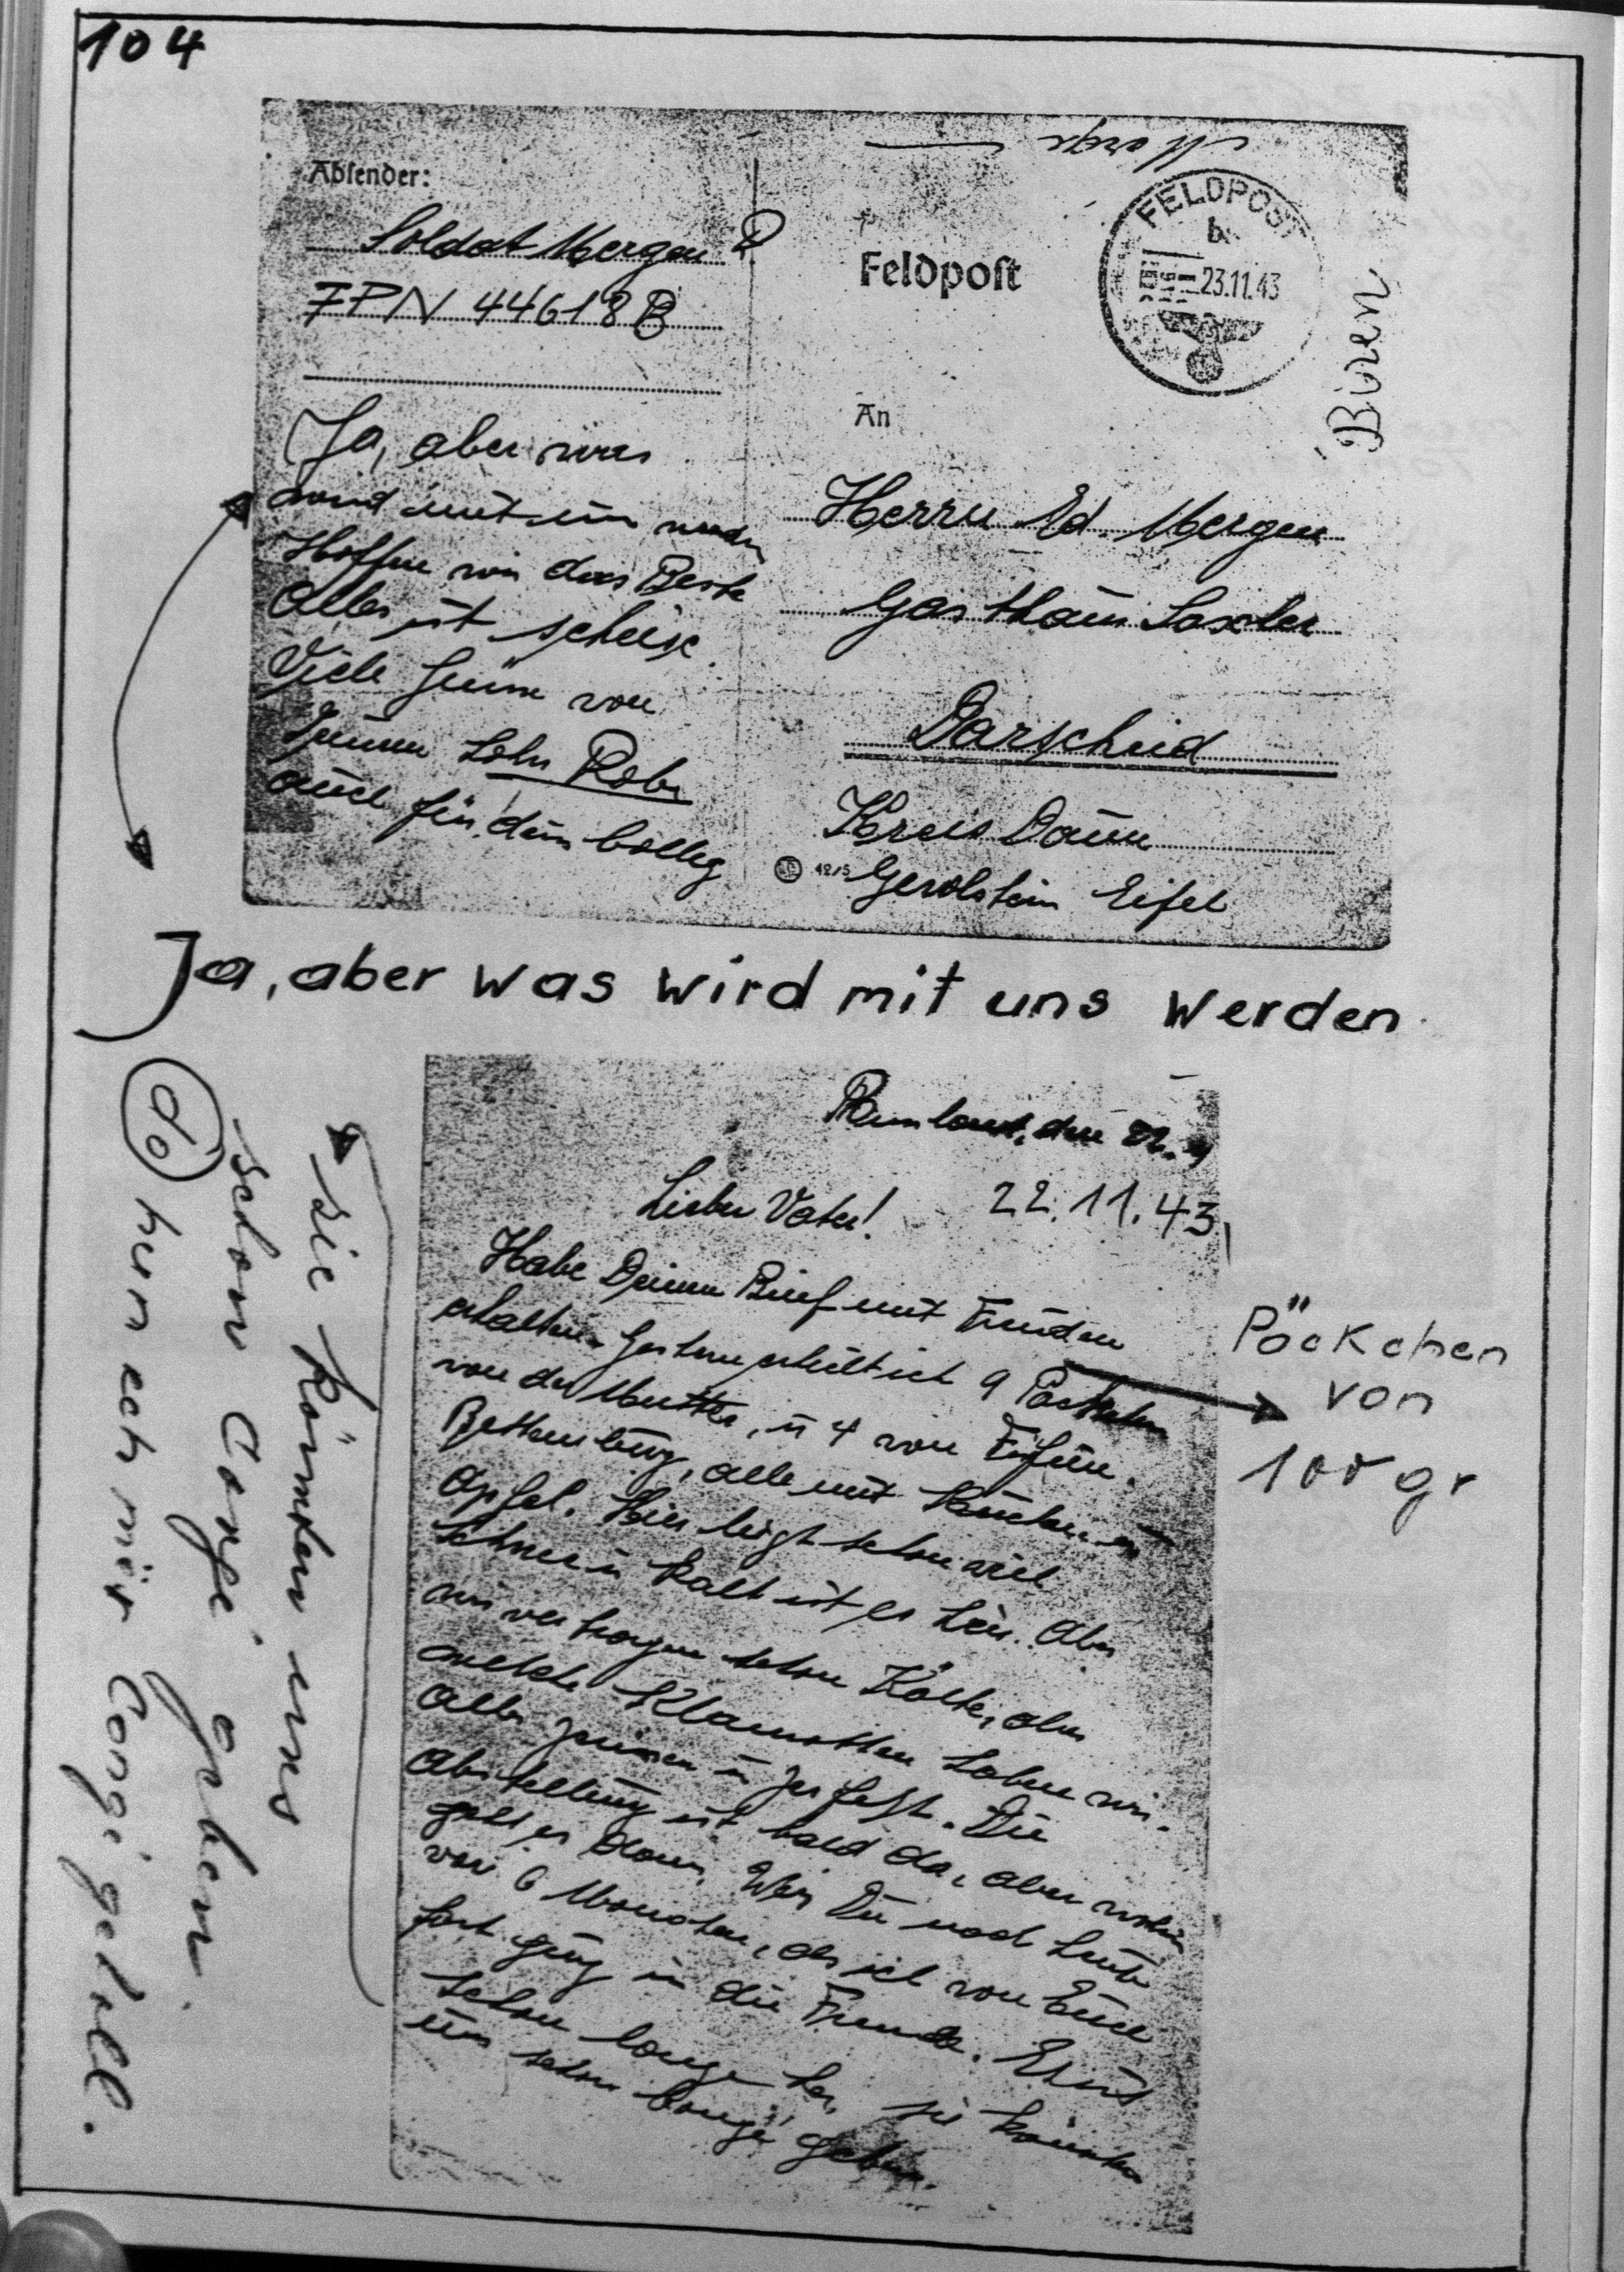 104
Absender:
Soldat Mergen R
FPN 44618B
Feldpost
FELDPOST
b
23.11.43
Büren
An
Herrn Ed. Mergen
Gasthaus Saxler
Darscheid
Kreis Daun
Gerolstein Eifel
Ja, aber was
wird mit uns werden
Hoffen wir das Beste
Alles ist scheise
Viele Grüsse von
Deinem Sohn Rob
auch für dein Colleg
12/5
Ja, aber was wird mit uns werden
Rumland, den 22.
22.11.43
Lieber Vater!
Habe Deinen Brief mit Freuden
erhalten. Gestern erhielt ich 9 Päckchen
von der Mutter, u 4 von
Bettemburg, alle mit Kuchen u
Äpfel. Hier liegt schon viel
Schnee u kalt ist es hier. Aber
wir vertragen schon Kälte, aber
welche Klamotten haben wir.
Alles zerissen u zerfetzt. Die
Abstellung ist bald da, aber wohin
geht es dann. Weis Du noch heute
vor 6 Monaten, als ich von Euch
fort ging in die Fremde. Es ist
schon lange her, sie könnten
uns schon Congé geben.
Päckchen
von
100 gr
sie könnten uns
schon Congé geben.
do hun ech mir Congé geholl.